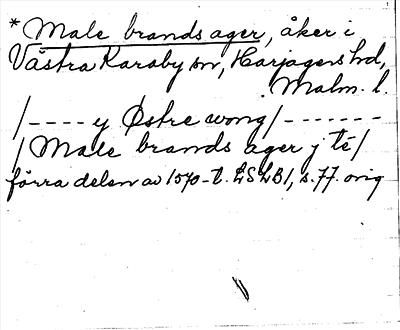 *Male brands ager, åker i
Västra Karaby sn, Harjagers hd,
Malm. l.
/---- y Østre wong/-------
/Male brands ager j té/
förra delen av 1570-t. LSLB1, s. 77. orig